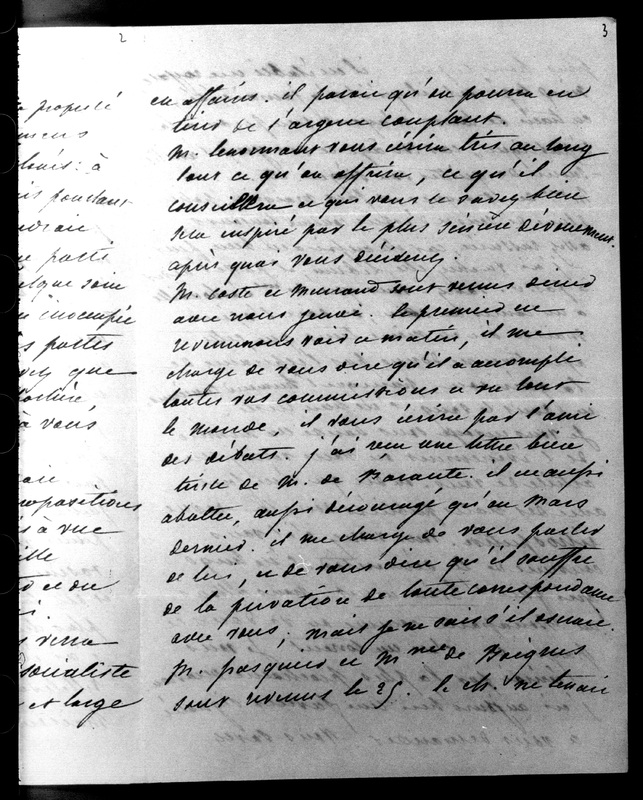 2
3
propulé
mens
louis : à
is pourtant
parti
elque soin
inoccupée
s portes
que
à vous
propositions
à vue
ille
et ce du
s verra
socialiste
et large
en affaires. il parait qu'on pourra en
tirer de l'argent comptant.
M. Lenormant vous écrira très au long
tout ce qu'on offrira, ce qu'il
conseillera ce qui vous le savez bien
sera inspiré par le plus sincère dévouement.
après quoi vous déciderez.
M. Coste et Munand sont venus diner
avec nous jeudi. le premier est
revenu nous voir ce matin, il me
charge de vous dire qu'il a accompli
toutes vos commissions et vu tout
le monde, il vous écrira par l'ami
des débats. j'ai reçu une lettre bien
triste de M. de Barante. il est aussi
abattu, aussi découragé qu'en Mars
dernier. il me charge de vous parler
de lui, et de vous dire qu'il souffre
de la privation de toute correspondance
avec vous, mais je ne sais s'il oserait.
M. Pasquier et Mme de Boignes
sont revenus le 25. le ch. ne tenait